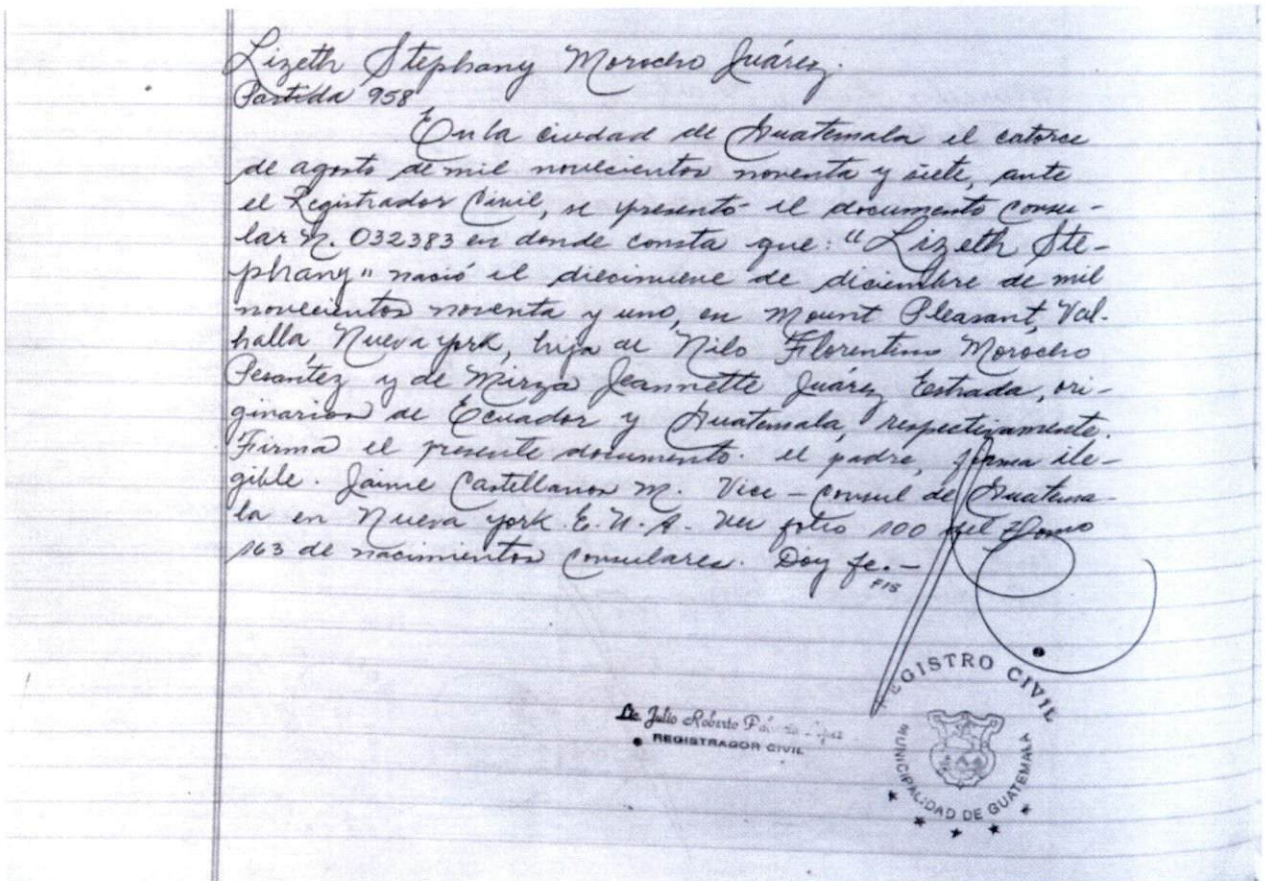 Lizeth Stephany Morocho Juárez.
Partida 958
En la ciudad de Guatemala el catorce
de agosto de mil novecientos noventa y siete, ante
el Registrador Civil, se presentó el documento consu-
lar N. 032383 en donde consta que: "Lizeth Ste-
phany" nació el diecinueve de diciembre de mil
novecientos noventa y uno, en Mount Pleasant, Val-
halla, Nueva york, hija de Nilo Florentino Morocho
Pesantez y de Mirza Jeannette Juárez Estrada, ori-
ginarios de Ecuador y Guatemala, respectivamente.
Firma el presente documento: el padre, firma ile-
gible. Jaime Castellanos M. Vice-consul de Guatema-
la en Nueva york. E.U.A. Ver folio 100 del Tomo
163 de nacimientos consulares. Doy fe.-
Lic. Julio Roberto
REGISTRADOR CIVIL
REGISTRO CIVIL
MUNICIPALIDAD DE GUATEMALA